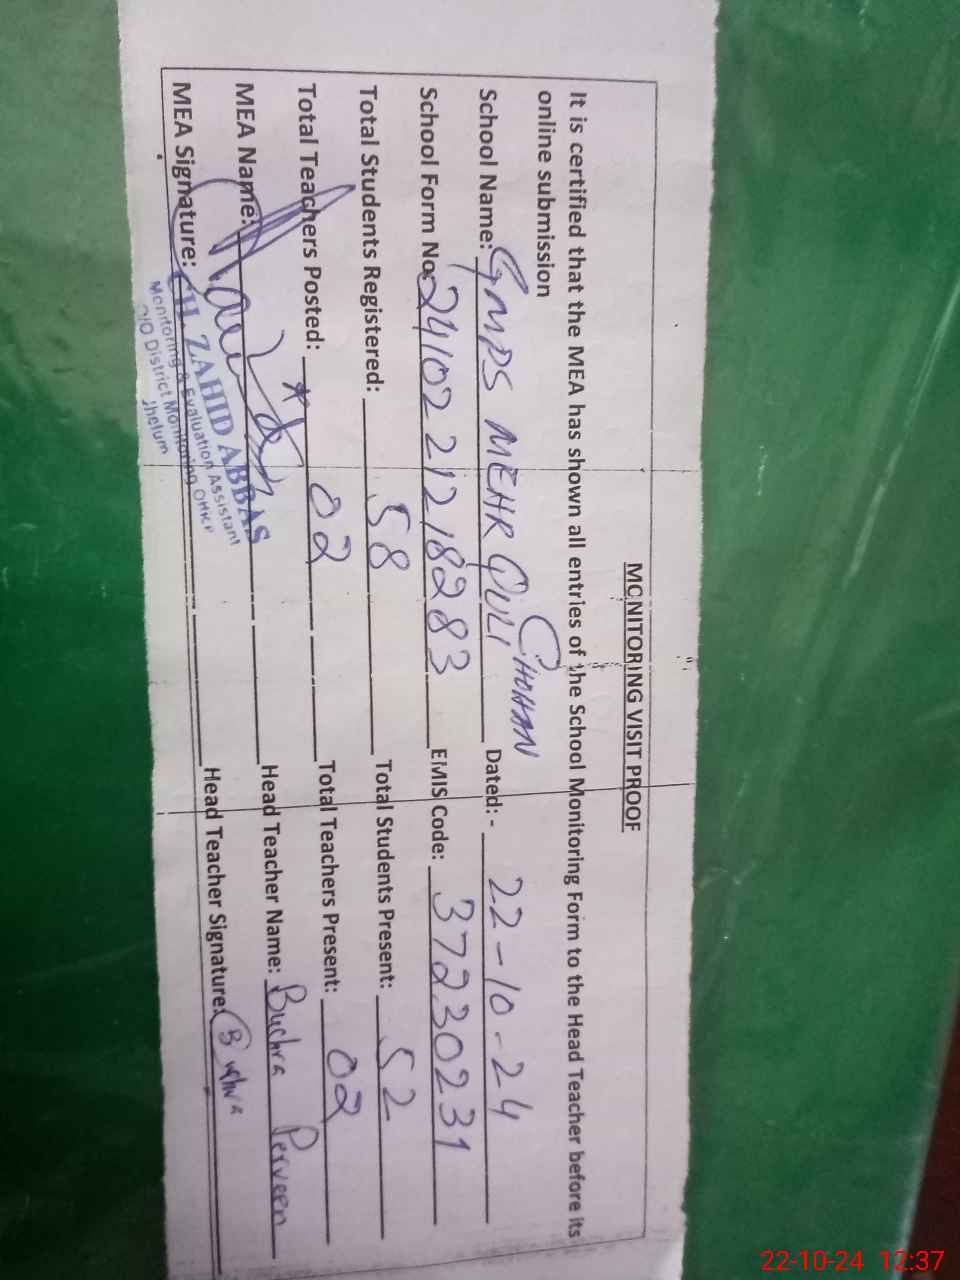 MONITORING VISIT PROOF
It is certified that the MEA has shown all entries of the School Monitoring Form to the Head Teacher before its
online submission
School Name: GMPS MEHR QULI CHOHAN Dated: - 22-10-24
School Form No: 24102 212 18283 EMIS Code: 37230231
Total Students Registered: 58 Total Students Present: 52
Total Teachers Posted: 02 Total Teachers Present: 02
MEA Name: Head Teacher Name: Bushra Perveen
MEA Signature: Head Teacher Signature: Bushra
CH. ZAHID ABBAS
Monitoring & Evaluation Assistant
O/O District Monitoring Office
Jhelum
22-10-24 12:37